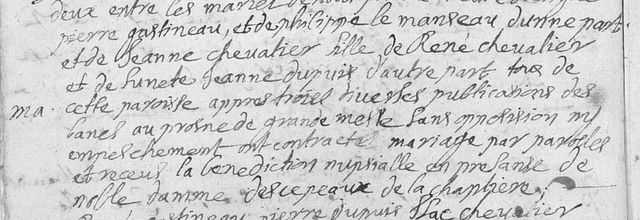 deux entre les
pierre gastineau, et de philippe le manseau d'unne part
et de Jeanne chevalier fille de René chevalier
et de funete Jeanne dupuis d'autre part tous de
ma. cette paroisse appres troies diverses publications des
bancs au prosne de grande messe sans opposision ny
empeschement ont contracté mariage par parolles
et receus la benediction nupsialle en presanse de
noble damme descepeaux de la chantiere,
gastineau pierre dupuis chevalier